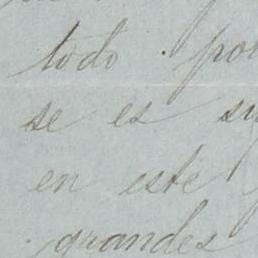 todo por
se es su
en este
grandes